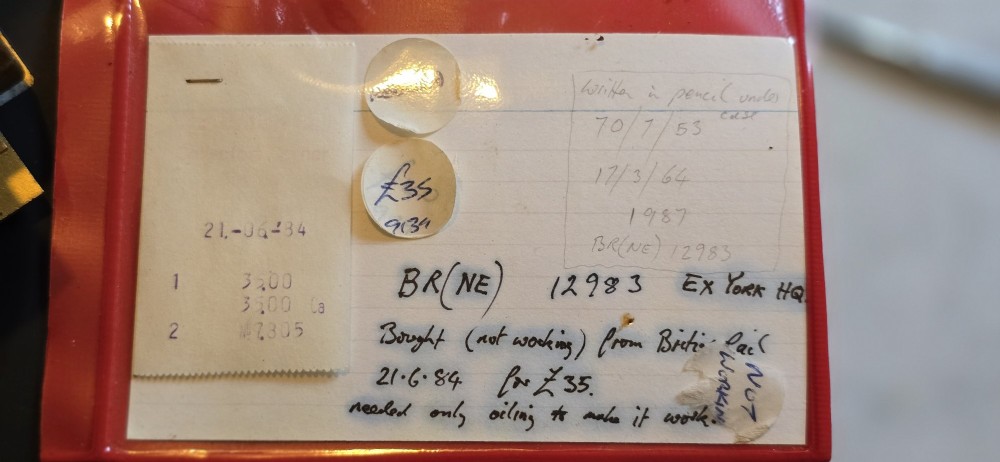 21.-06-84
1 35.00
35.00 Ca
2
£35
written in pencil under
case
70/7/53
17/3/64
1987
BR(NE) 12983
BR(NE) 12983 EX YORK HQ
Bought (not working) from British Rail
21.6.84 for £35.
needed only oiling to make it work.
NOT
WORKIN